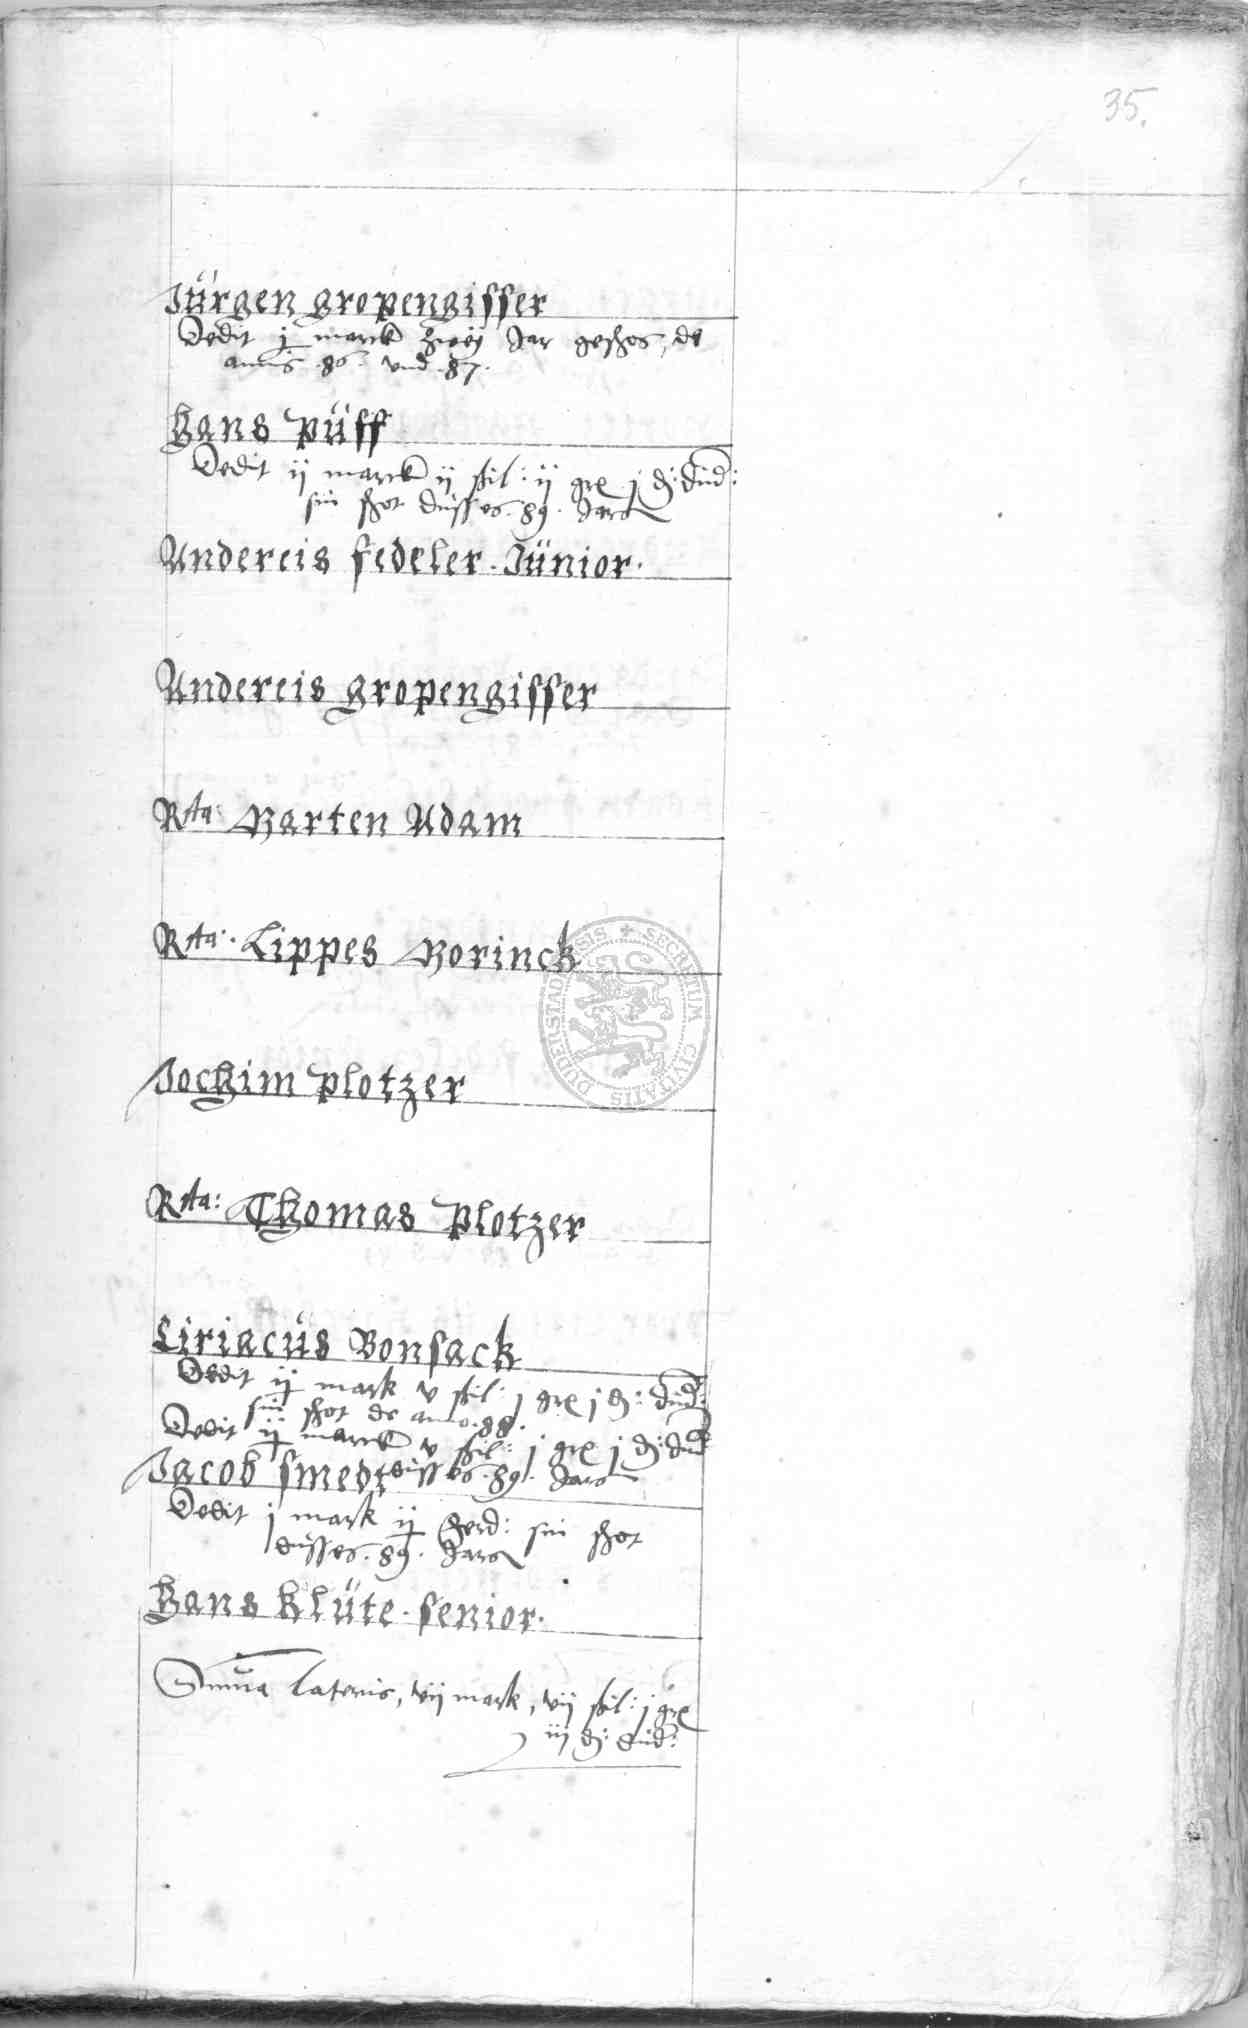 35.
Jürgen gropengisser
Dedit j marck zweÿ Jar geschos, de
annis .86. vnd .87.
Hans püff
Dedit ij marck ij ßil: ij gre j d: düd:
sin schot düsses .89. Jars
Andereis fedeler . Jünior.
Andereis gropengisser
Rta: Barten Adam
Rta: Lippes Borinck
Jochim plotzer
Rta: Thomas plotzer
Ciriacüs Bonsack
Dedit ij mark v ßil: j gre j d: düd:
sin schot de anno .88.
Dedit ij marck v ßil: j gre j d: düd:
düsses .89. Jars
Jacob smedt
Dedit j mark ij ferd: sin schot
düsses .89. Jars
Hans klüte . senior.
Summa lateris, vij mark, vij ßil: j gre
iij d: düd:
DUDERSTADENSIS + SECRETUM CIVITATIS